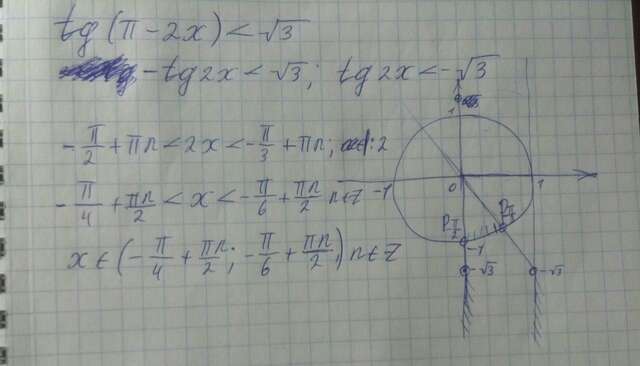 tg(π-2x)<√3
-tg2x<√3; tg2x<-√3
-π/2+πn<2x<-π/3+πn; :2
-π/4+πn/2<x<-π/6+πn/2 n∈Z
x∈(-π/4+πn/2; -π/6+πn/2) n∈Z
1
-1
0
1
-1
-√3
-√3